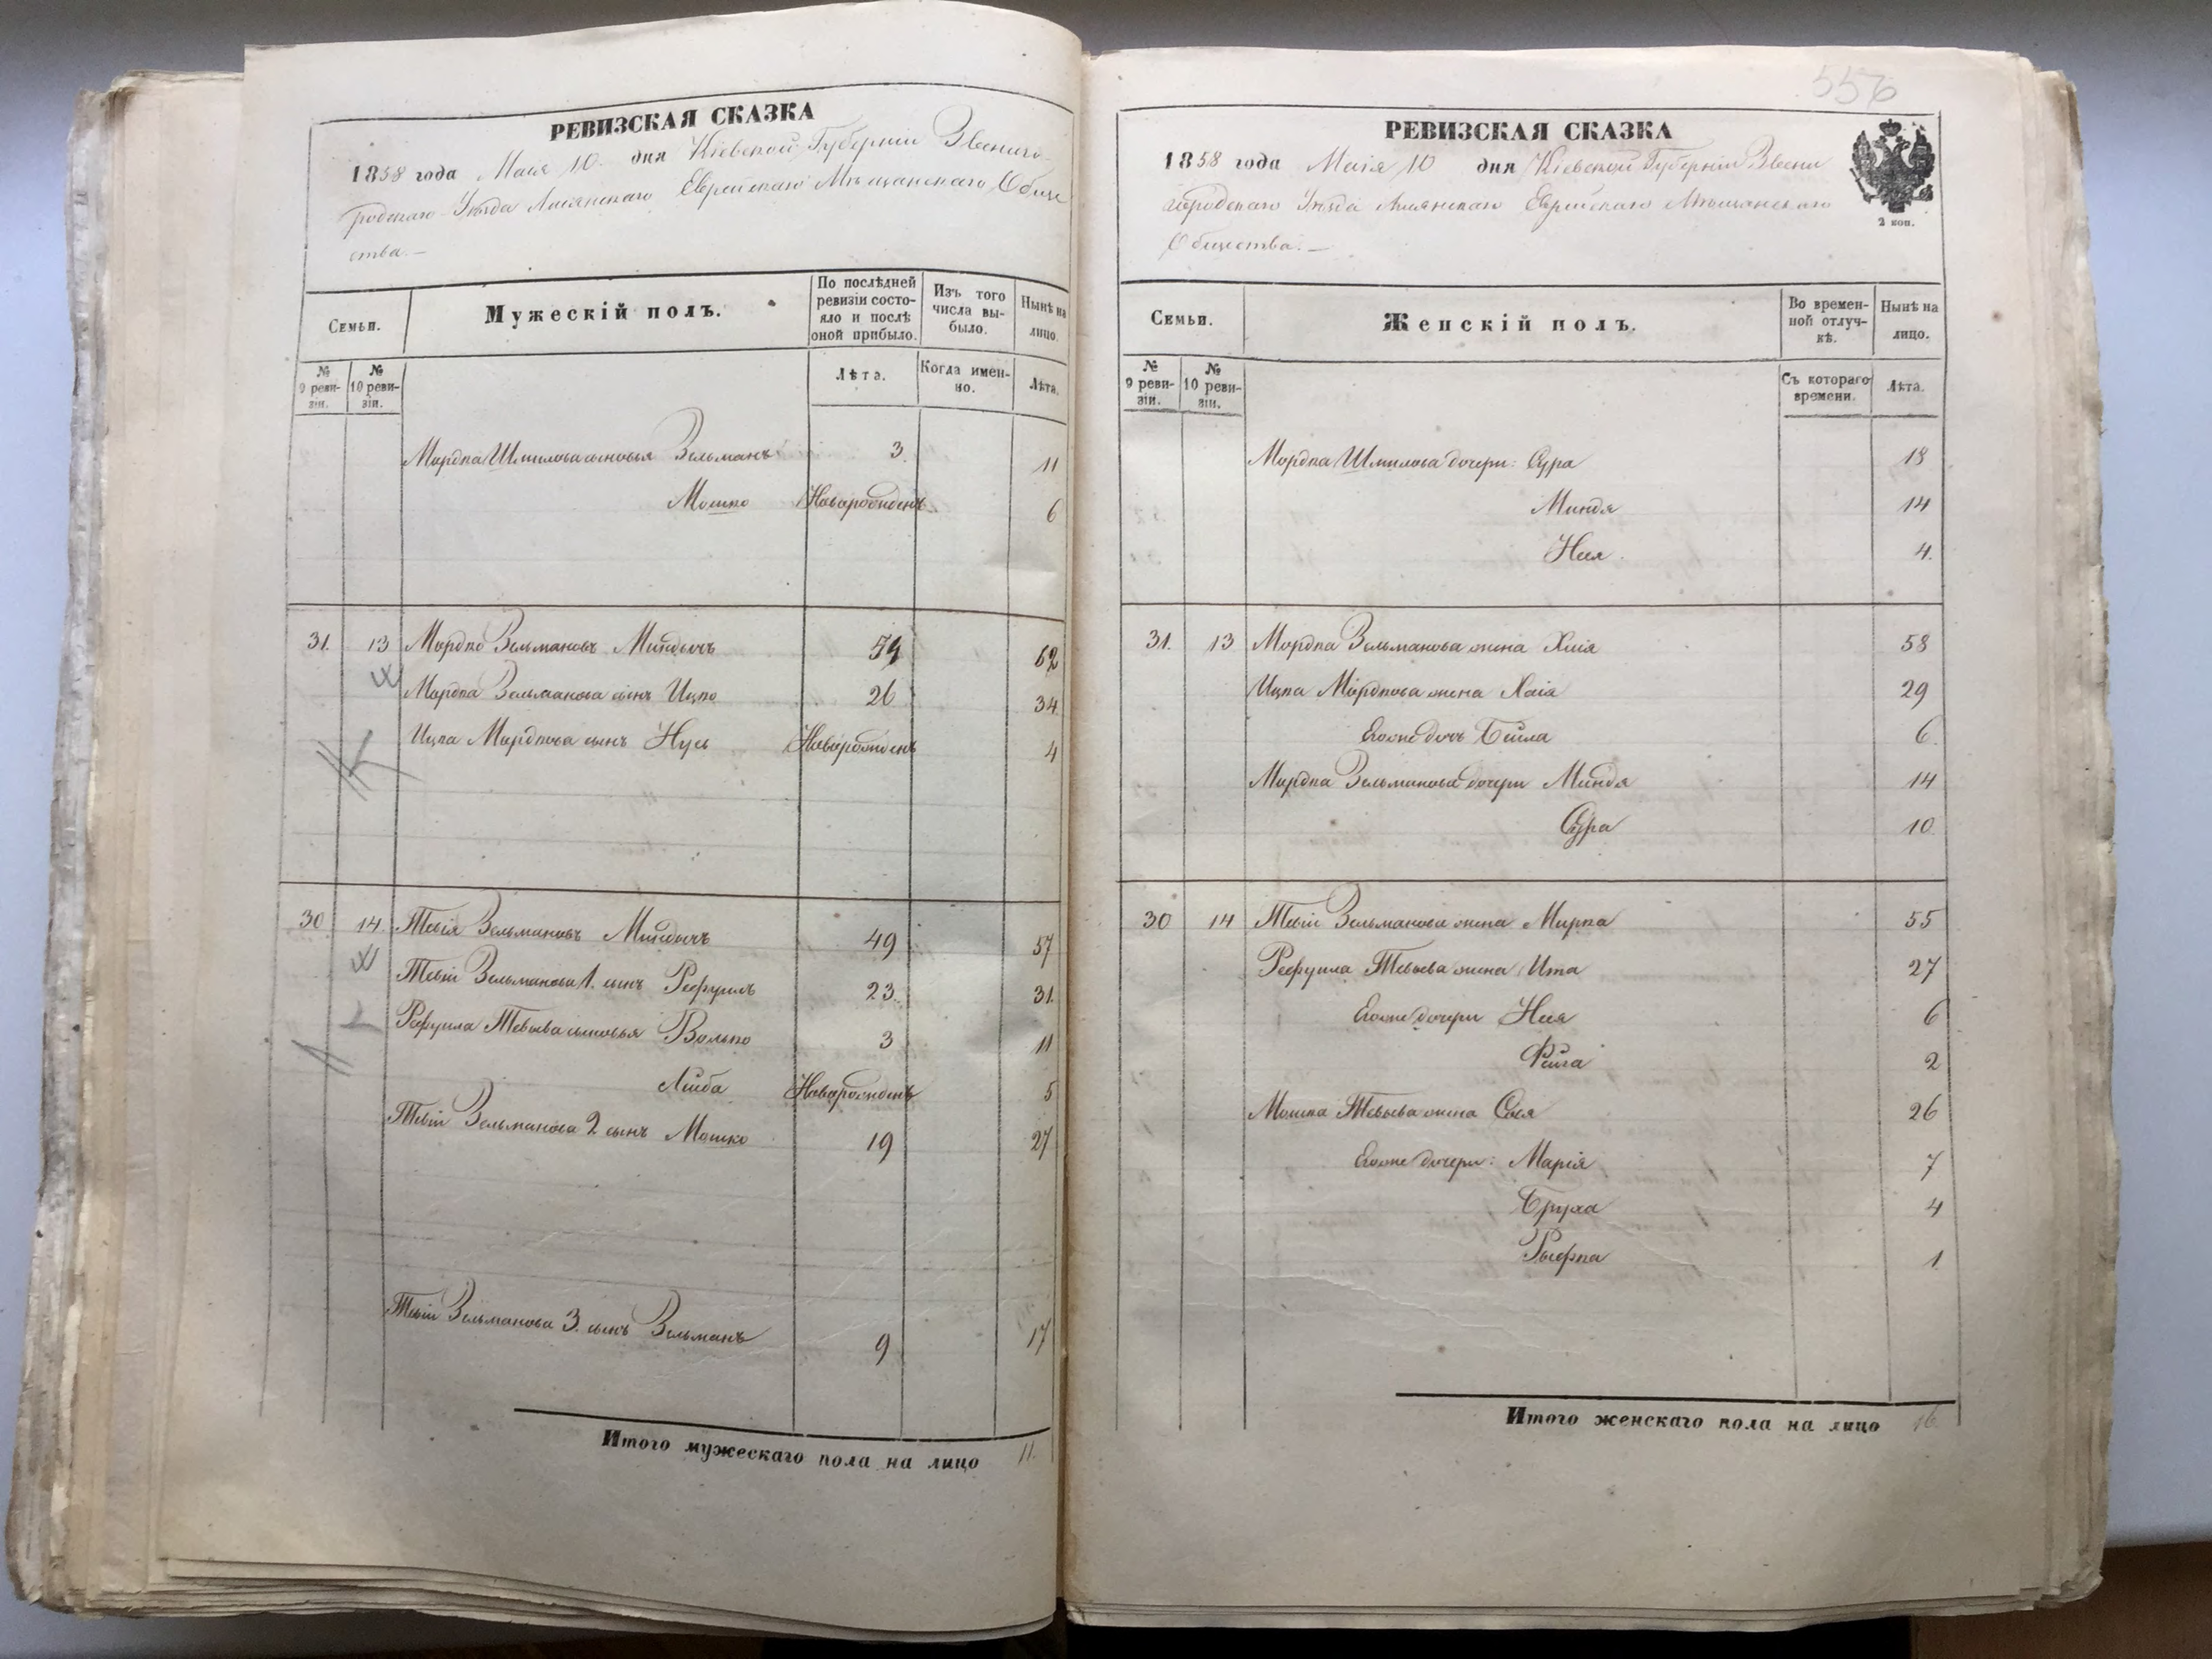 РЕВИЗСКАЯ СКАЗКА
1858 года Мая 10 дня Кіевской Губерніи Звениго-
родскаго Уѣзда Лисянскаго Еврейскаго Мѣщанскаго Обще
ства. —
Семьи.
Мужескій полъ.
По послѣдней ревизіи состо-яло и послѣ оной прибыло.
Изъ того числа вы-было.
Нынѣ на лицо.
№ 9 реви-зіи.
№ 10 реви-зіи.
Лѣта.
Когда имен-но.
Лѣта.
Мордка Шмилова сыновья Зельманъ 3. 11
Мошко Новорожденъ 6
31. 13 Мордко Зельмановъ Миндичъ 54 62
Мордка Зельманова сынъ Ицко 26 34
Ицка Мордкова сынъ Нусь Новорожденъ 4
30 14. Тевія Зельмановъ Миндичъ 49 57
Тевіи Зельманова 1. сынъ Рефуилъ 23. 31.
Рефуила Тевьева сыновья Волько 3 11
Лейба Новорожденъ 5
Тевіи Зельманова 2 сынъ Мошко 19 27
Тевіи Зельманова 3. сынъ Зельманъ 9 17
Итого мужескаго пола на лицо 11.
556
РЕВИЗСКАЯ СКАЗКА
1858 года Мая 10 дня Кіевской Губерніи Звени
городскаго Уѣзда Лисянскаго Еврейскаго Мѣщанскаго
Общества. —
2 коп.
Семьи.
Женскій полъ.
Во времен-ной отлуч-кѣ.
Нынѣ на лицо.
№ 9 реви-зіи.
№ 10 реви-зіи.
Съ котораго времени.
Лѣта.
Мордка Шмилова дочери: Сура 18
Миндя 14
Нея. 4.
31. 13 Мордка Зельманова жена Хаія 58
Ицка Мордкова жена Хаія 29
Егоже дочь Бейла 6.
Мордка Зельманова дочери Миндя 14
Сура 10.
30 14 Тевіи Зельманова жена Мирка 55
Рефуила Тевьева жена Ита 27
Егоже дочери Нея 6
Фейга 2
Мошка Тевьева жена Сося 26
Егоже дочери: Марія 7
Бруха 4
Рыфка 1.
Итого женскаго пола на лицо 16